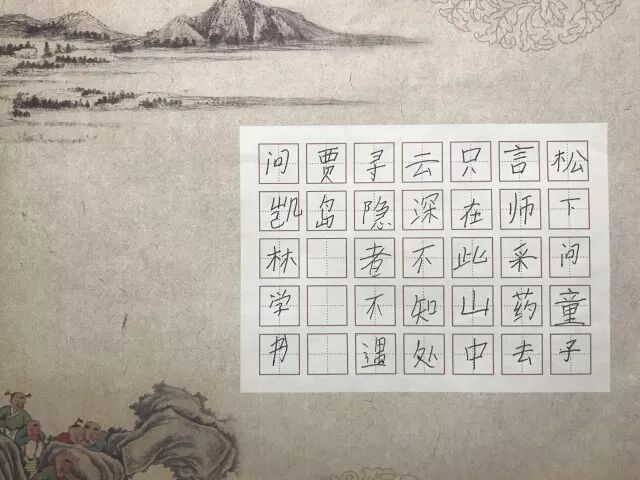 松下问童子
言师采药去
只在此山中
云深不知处
寻隐者不遇
贾岛
问凯林学书